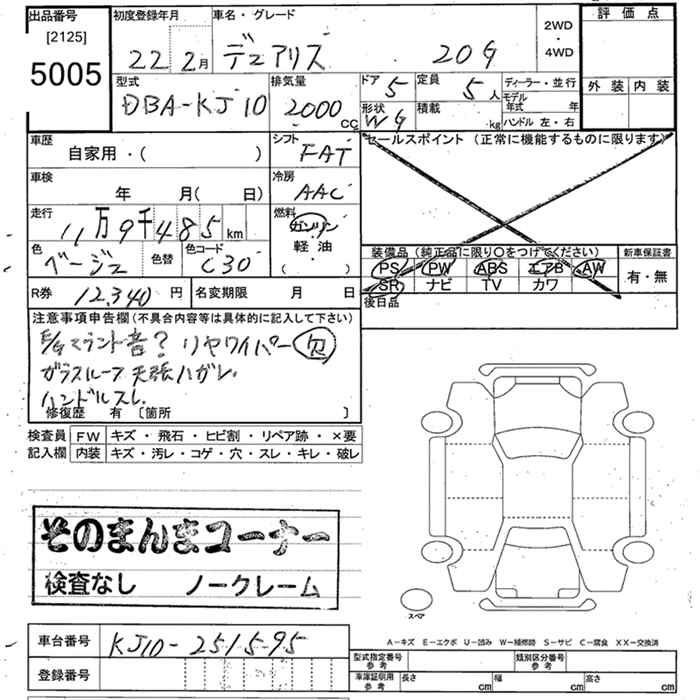 出品番号
[2125]
5005
初度登録年月
22 2月
車名・グレード
デュアリス 20G
2WD
・
4WD
評価点
外装 内装
型式
DBA-KJ10
排気量
2000 CC
ドア 5
定員 5人
形状 WG
積載 kg
ディーラー・並行
モデル年式 年
ハンドル 左・右
車歴
自家用・( )
シフト
FAT
セールスポイント(正常に機能するものに限ります)
車検
年 月( 日)
冷房
AAC
走行
11万9千485km
燃料
ガソリン
軽油
( )
色
ベージュ
色替
色コード
C30
装備品(純正品に限り○をつけてください)
PS PW ABS エアB AW
SR ナビ TV カワ
新車保証書
有・無
R券 12,340円
名変期限 月 日
後日品
注意事項申告欄(不具合内容等は具体的に記入して下さい)
E/Gマウント音? リヤワイパー欠
ガラスルーフ天張ハガレ
ハンドルスレ
修復歴 有 〔箇所 〕
検査員 FW キズ・飛石・ヒビ割・リペア跡・×要
記入欄 内装 キズ・汚レ・コゲ・穴・スレ・キレ・破レ
そのまんまコーナー
検査なし ノークレーム
スペア
A−キズ E−エクボ U−凹み W−補修跡 S−サビ C−腐食 XX−交換済
車台番号 KJ10-251595
登録番号
型式指定番号 参考
類別区分番号 参考
車庫証明用 参考
長さ cm 幅 cm 高さ cm